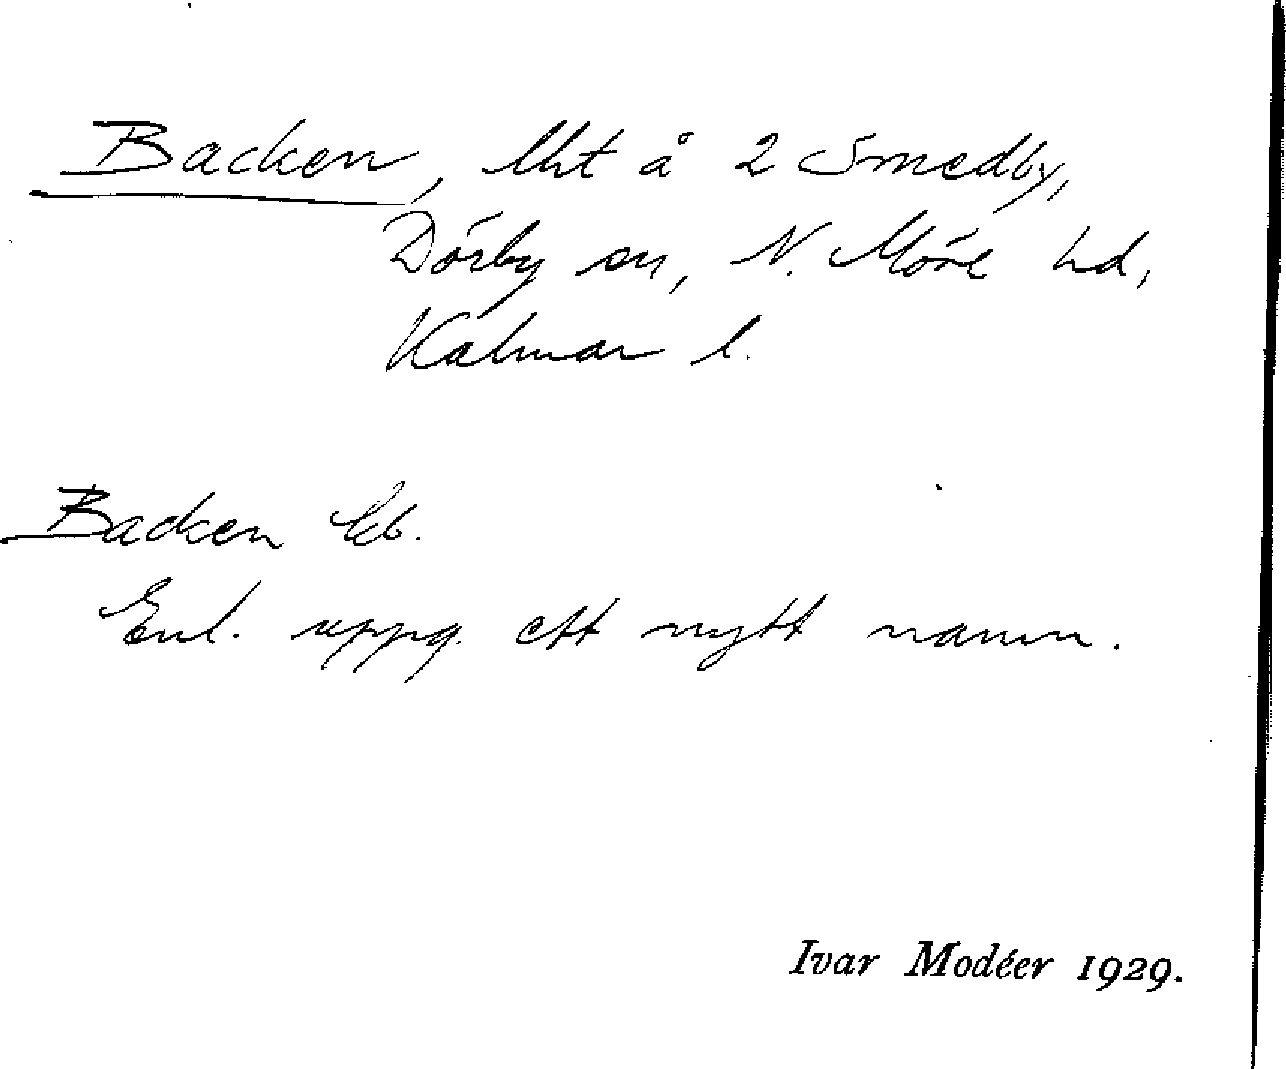 Backen, lht å 2 Smedby,
Dörby sn, N. Möre hd,
Kalmar l.
Backen Eb.
Enl. uppg. ett nytt namn.
Ivar Modéer 1929.